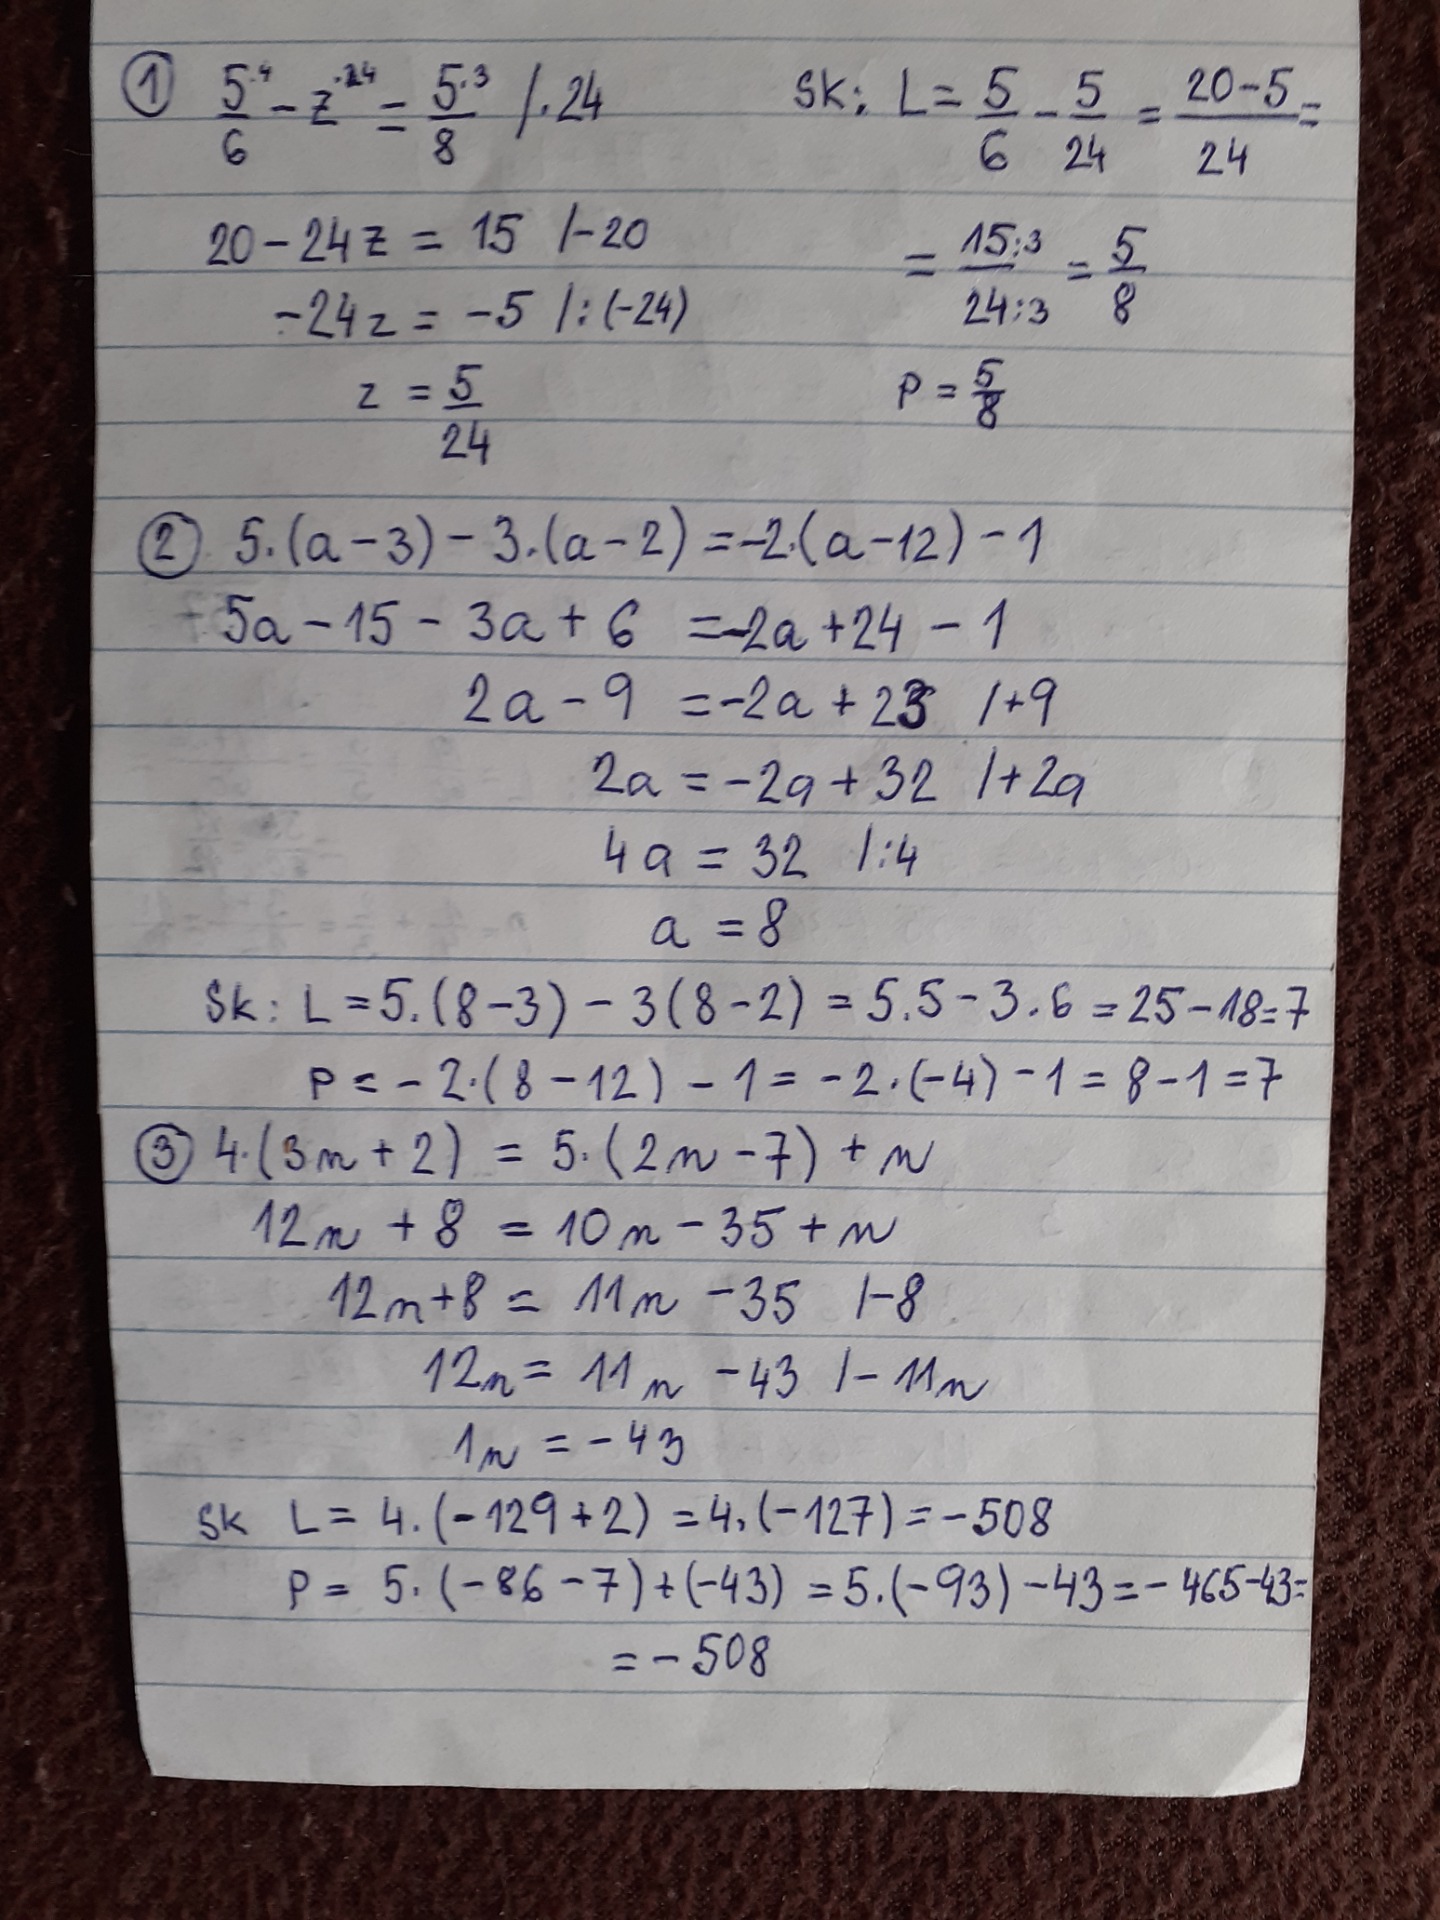 ① 5·4/6 - z·24 = 5·3/8 /·24
20 - 24z = 15 /-20
-24z = -5 /:(-24)
z = 5/24
Sk: L = 5/6 - 5/24 = 20-5/24 =
= 15:3/24:3 = 5/8
P = 5/8
② 5·(a-3) - 3·(a-2) = -2·(a-12) - 1
5a - 15 - 3a + 6 = -2a + 24 - 1
2a - 9 = -2a + 23 /+9
2a = -2a + 32 /+2a
4a = 32 /:4
a = 8
Sk: L = 5·(8-3) - 3(8-2) = 5·5 - 3·6 = 25-18=7
P = -2·(8-12) - 1 = -2·(-4) - 1 = 8-1=7
③ 4·(3n+2) = 5·(2n-7) + n
12n + 8 = 10n - 35 + n
12n+8 = 11n - 35 /-8
12n = 11n - 43 /-11n
1n = -43
Sk L = 4·(-129+2) = 4·(-127) = -508
P = 5·(-86-7)+(-43) = 5·(-93) - 43 = -465-43=
= -508